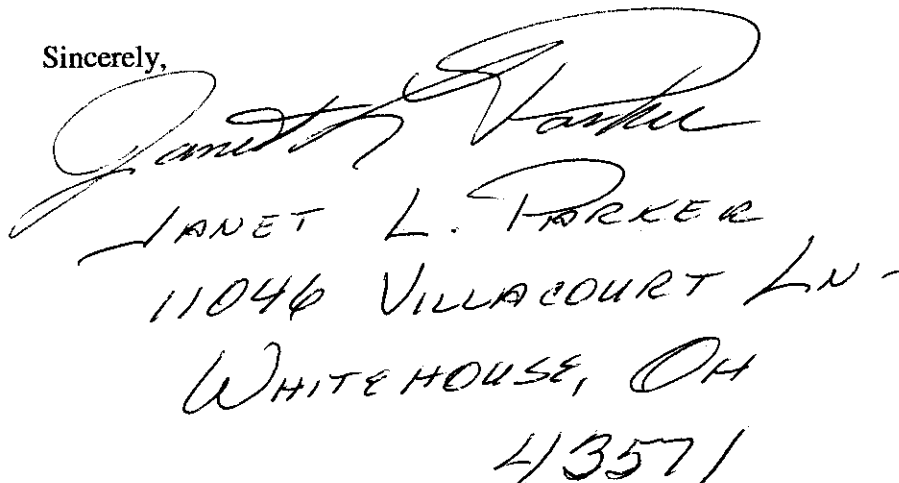 Sincerely,
Janet L Parker
JANET L. PARKER
11046 VILLACOURT LN-
WHITEHOUSE, OH
43571